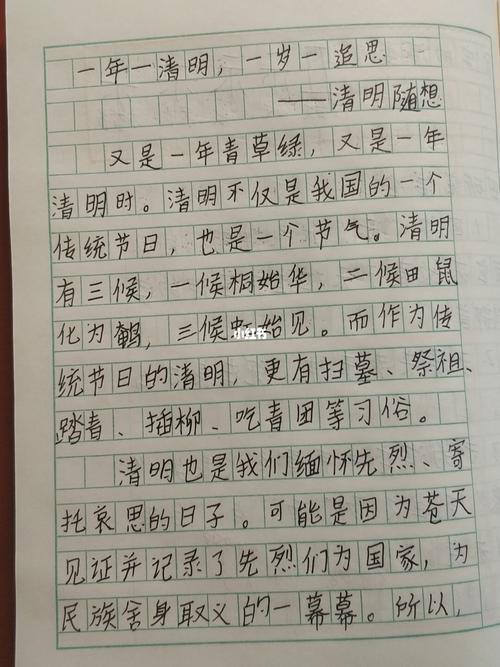 一年一清明，一岁一追思
——清明随想
又是一年青草绿，又是一年
清明时。清明不仅是我国的一个
传统节日，也是一个节气。清明
有三候，一候桐始华，二候田鼠
化为鹌，三候虹始见。而作为传
统节日的清明，更有扫墓、祭祖、
踏青、插柳、吃青团等习俗。
清明也是我们缅怀先烈、寄
托哀思的日子。可能是因为苍天
见证并记录了先烈们为国家，为
民族舍身取义的一幕幕。所以，
小红书